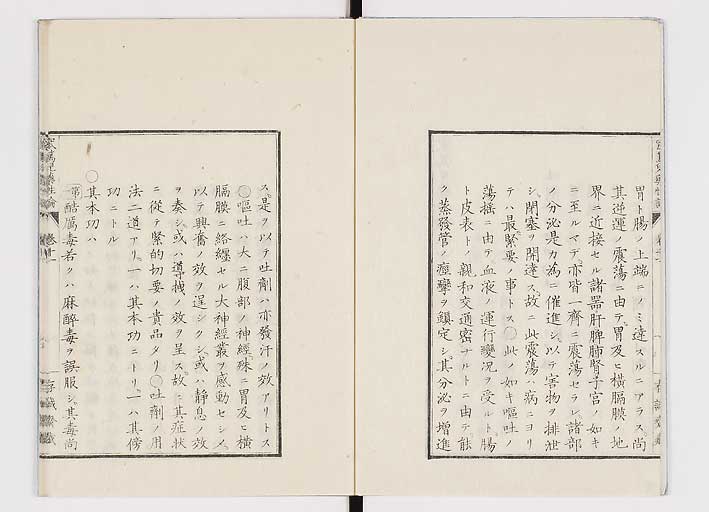 胃ト腸ノ上端ニノミ達スルニアラス尚
其逆運ノ震蕩ニ由テ胃及ヒ横膈膜ノ地
界ニ近接セル諸器肝脾肺腎子宮ノ如キ
ニ至ルマデ亦皆一齊ニ震蕩セラレ諸部
ノ分泌是カ為ニ催進シ以テ害物ヲ排泄
シ閉塞ヲ開達ス故ニ此震蕩ハ病ニヨリ
テハ最緊要ノ事トス○此ノ如キ嘔吐ノ
蕩揺ニ由テ血液ノ運行變况ヲ受ルト腸
ト皮表トノ親和交通密ナルトニ由テ能
ク蒸發管ノ痙攣ヲ鎮定シ其分泌ヲ增進
ス是ヲ以テ吐劑ハ亦發汗ノ效アリトス
○嘔吐ハ大ニ腹部ノ神經殊ニ胃及ヒ橫
膈膜ニ絡纒セル大神經叢ヲ感動セシメ
以テ興奮ノ效ヲ逞シクシ或ハ靜息ノ效
ヲ奏シ或ハ導拽ノ效ヲ呈ス故ニ其症狀
ニ從テ緊的切要ノ貴品タリ○吐劑ノ用
法ニ道アリ一ハ其本功ニトリ一ハ其傍
功ニトル
○其本功ハ
第一酷厲毒若クハ麻醉毒ヲ誤服シ其毒尚